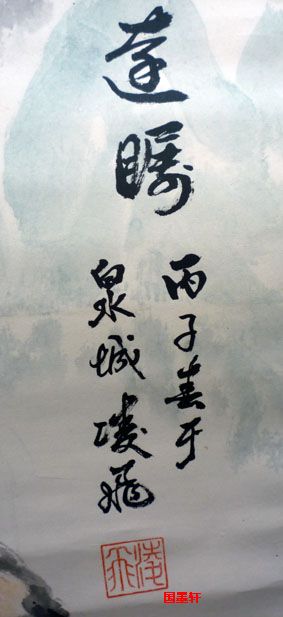 遠瞩
丙子春于
泉城凌飛
凌飛
国墨轩